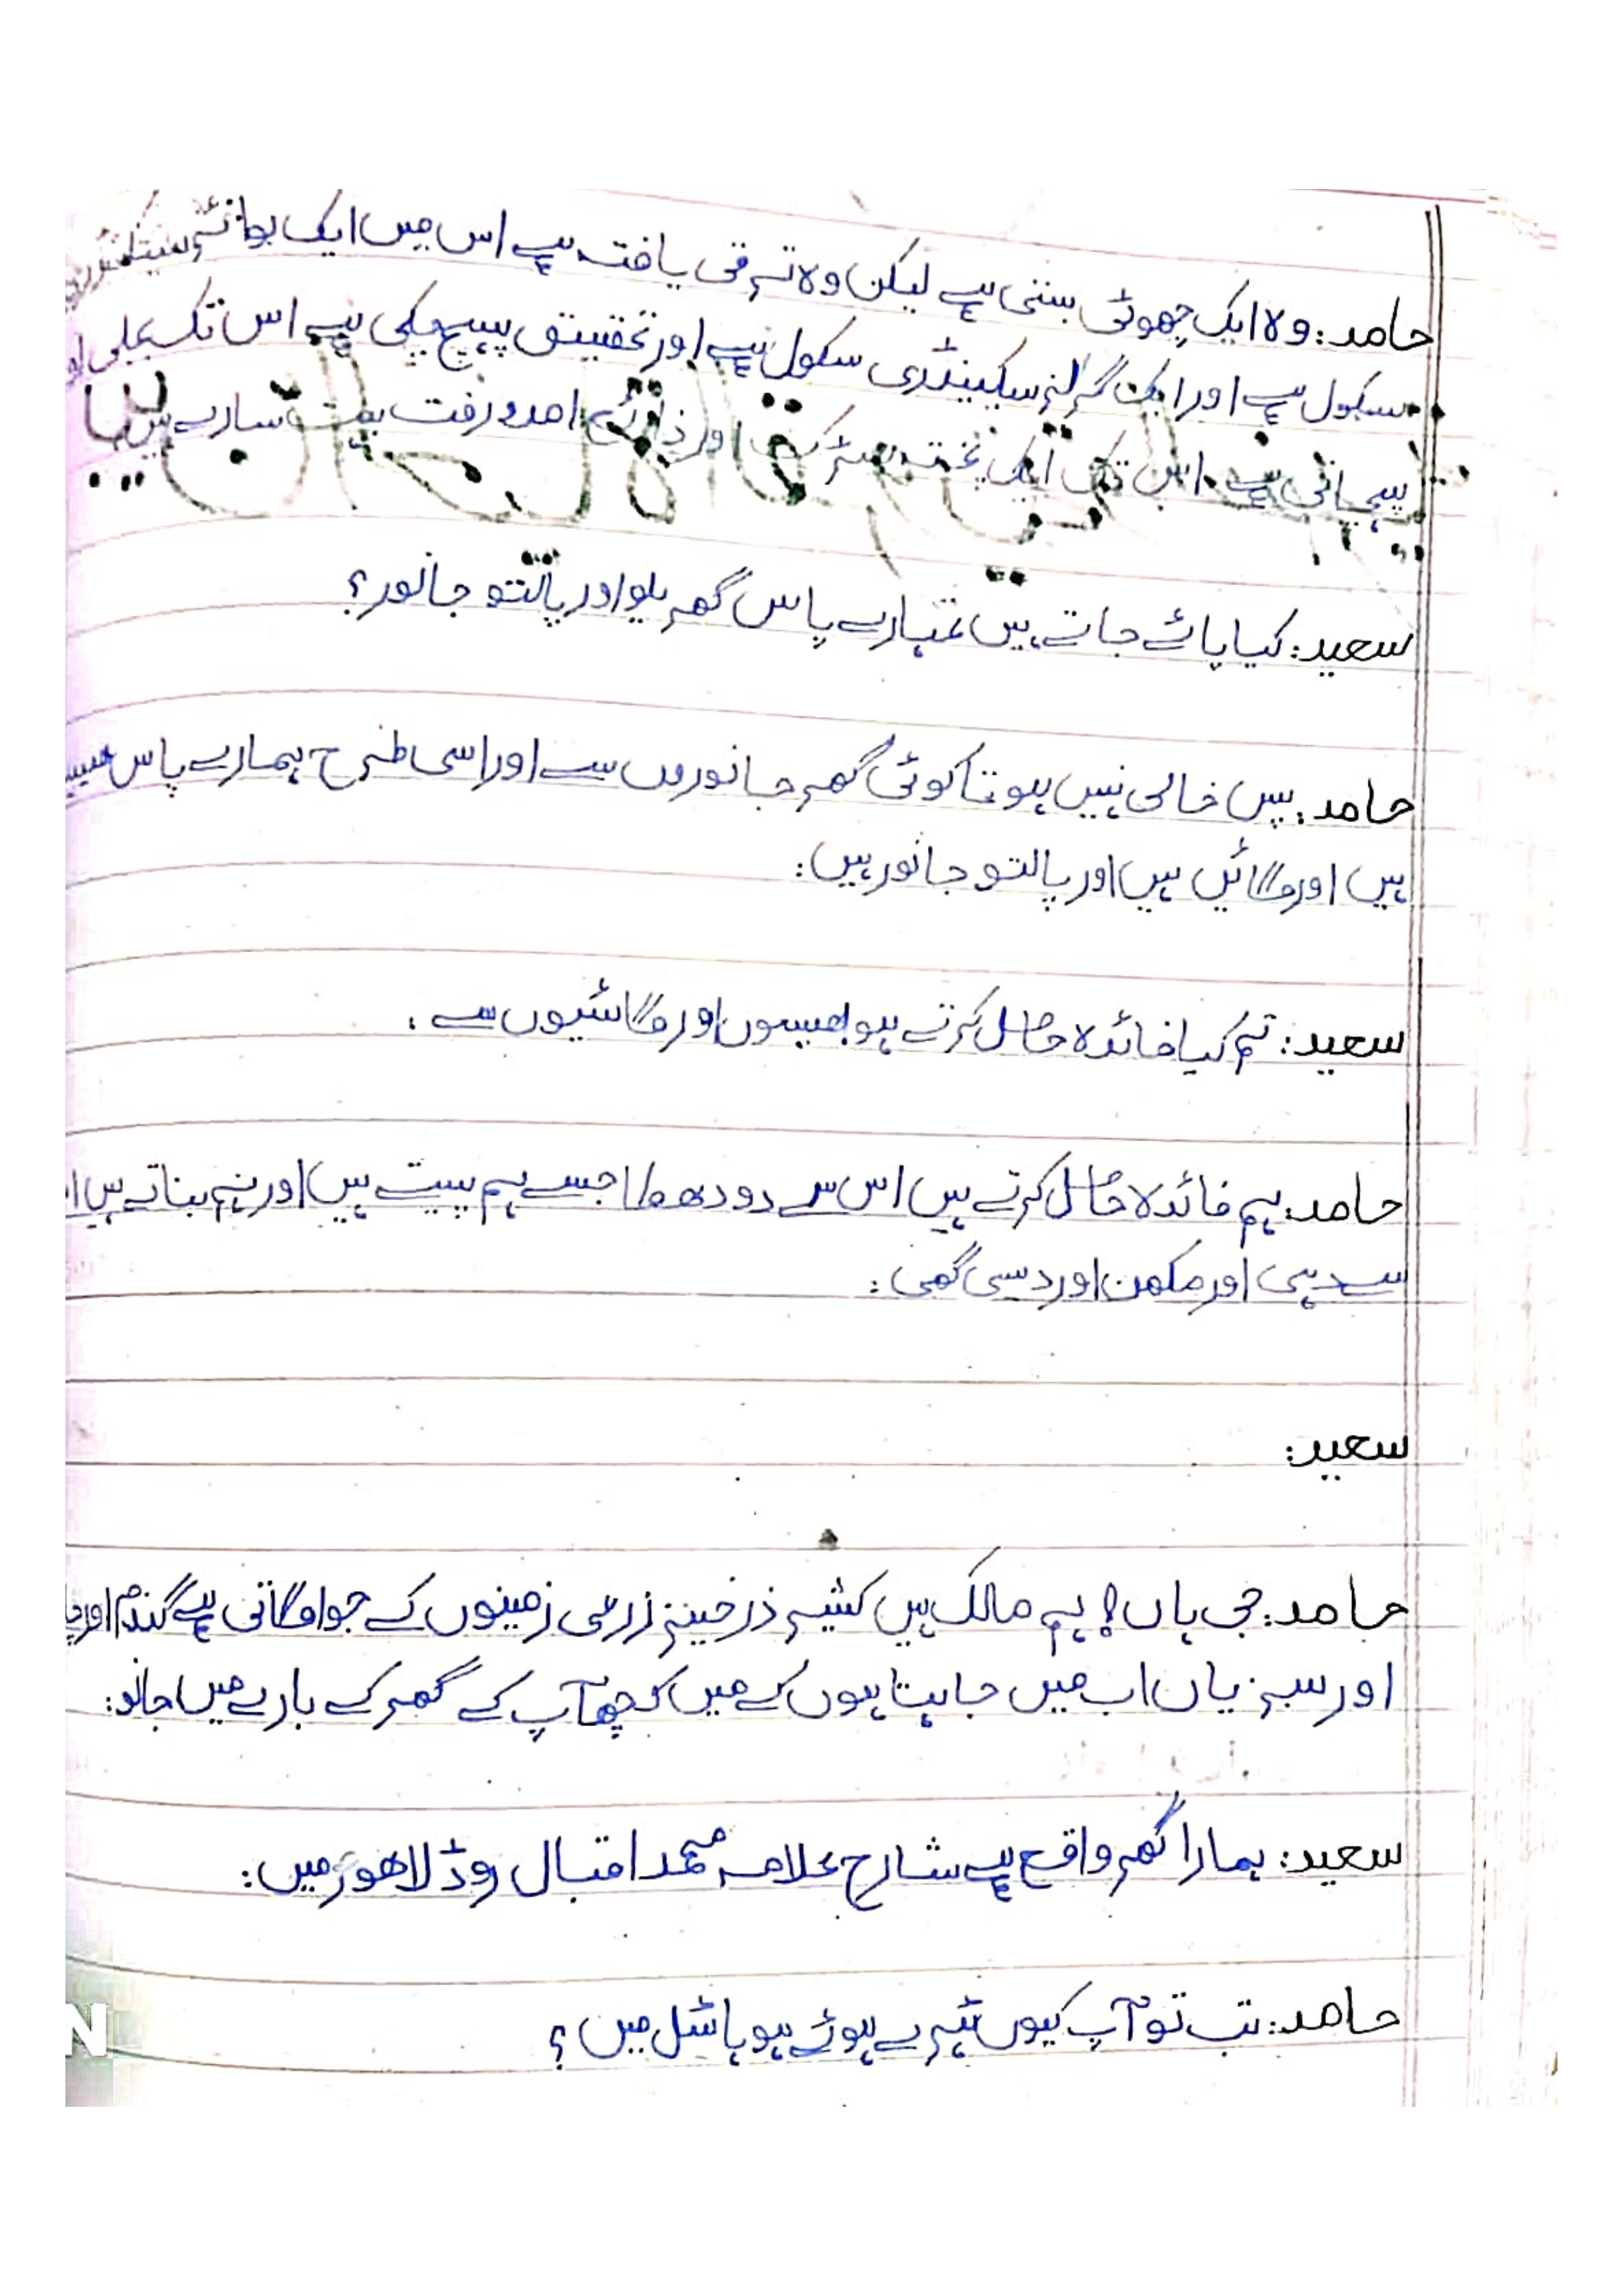 حامد: وہ ایک چھوٹی بستی ہے لیکن وہ ترقی یافتہ ہے اس میں ایک بوائز
سکول ہے اور ایک گرلز سکینڈری سکول ہے اور تحقیق پہنچ چکی ہے اس تک بجلی
پہچاتی ہے اس تک ایک پختہ سڑک اور ذرائع امدورفت بہت سارے ہیں
سعید: کیا پائے جاتے ہیں تمہارے پاس گھریلو اور پالتو جانور؟
حامد: پس خالی نہیں ہوتا کوئی گھر جانوروں سے اور اسی طرح ہمارے پاس
ہیں اور گائیں ہیں اور پالتو جانور ہیں:
سعید: تم کیا فائدہ حاصل کرتے ہو بھینسوں اور گائیوں سے:
حامد: ہم فائدہ حاصل کرتے ہیں اس سے دودھ کا جسے ہم پیتے ہیں اور ہم بناتے ہیں
سے دہی اور مکھن اور دیسی گھی:
سعید:
حامد: جی ہاں! ہم مالک ہیں کثیر ذرخیز زرعی زمینوں کے جو اگاتی ہے گندم اور
اور سبزیاں اب میں چاہتا ہوں کے میں کچھ آپ کے گھر کے بارے میں جانو:
سعید: ہمارا گھر واقع ہے شارح علامہ محمد اقبال روڈ لاھور میں:
حامد: تب تو آپ کیوں ٹہرے ہوئے ہو ہاسٹل میں؟